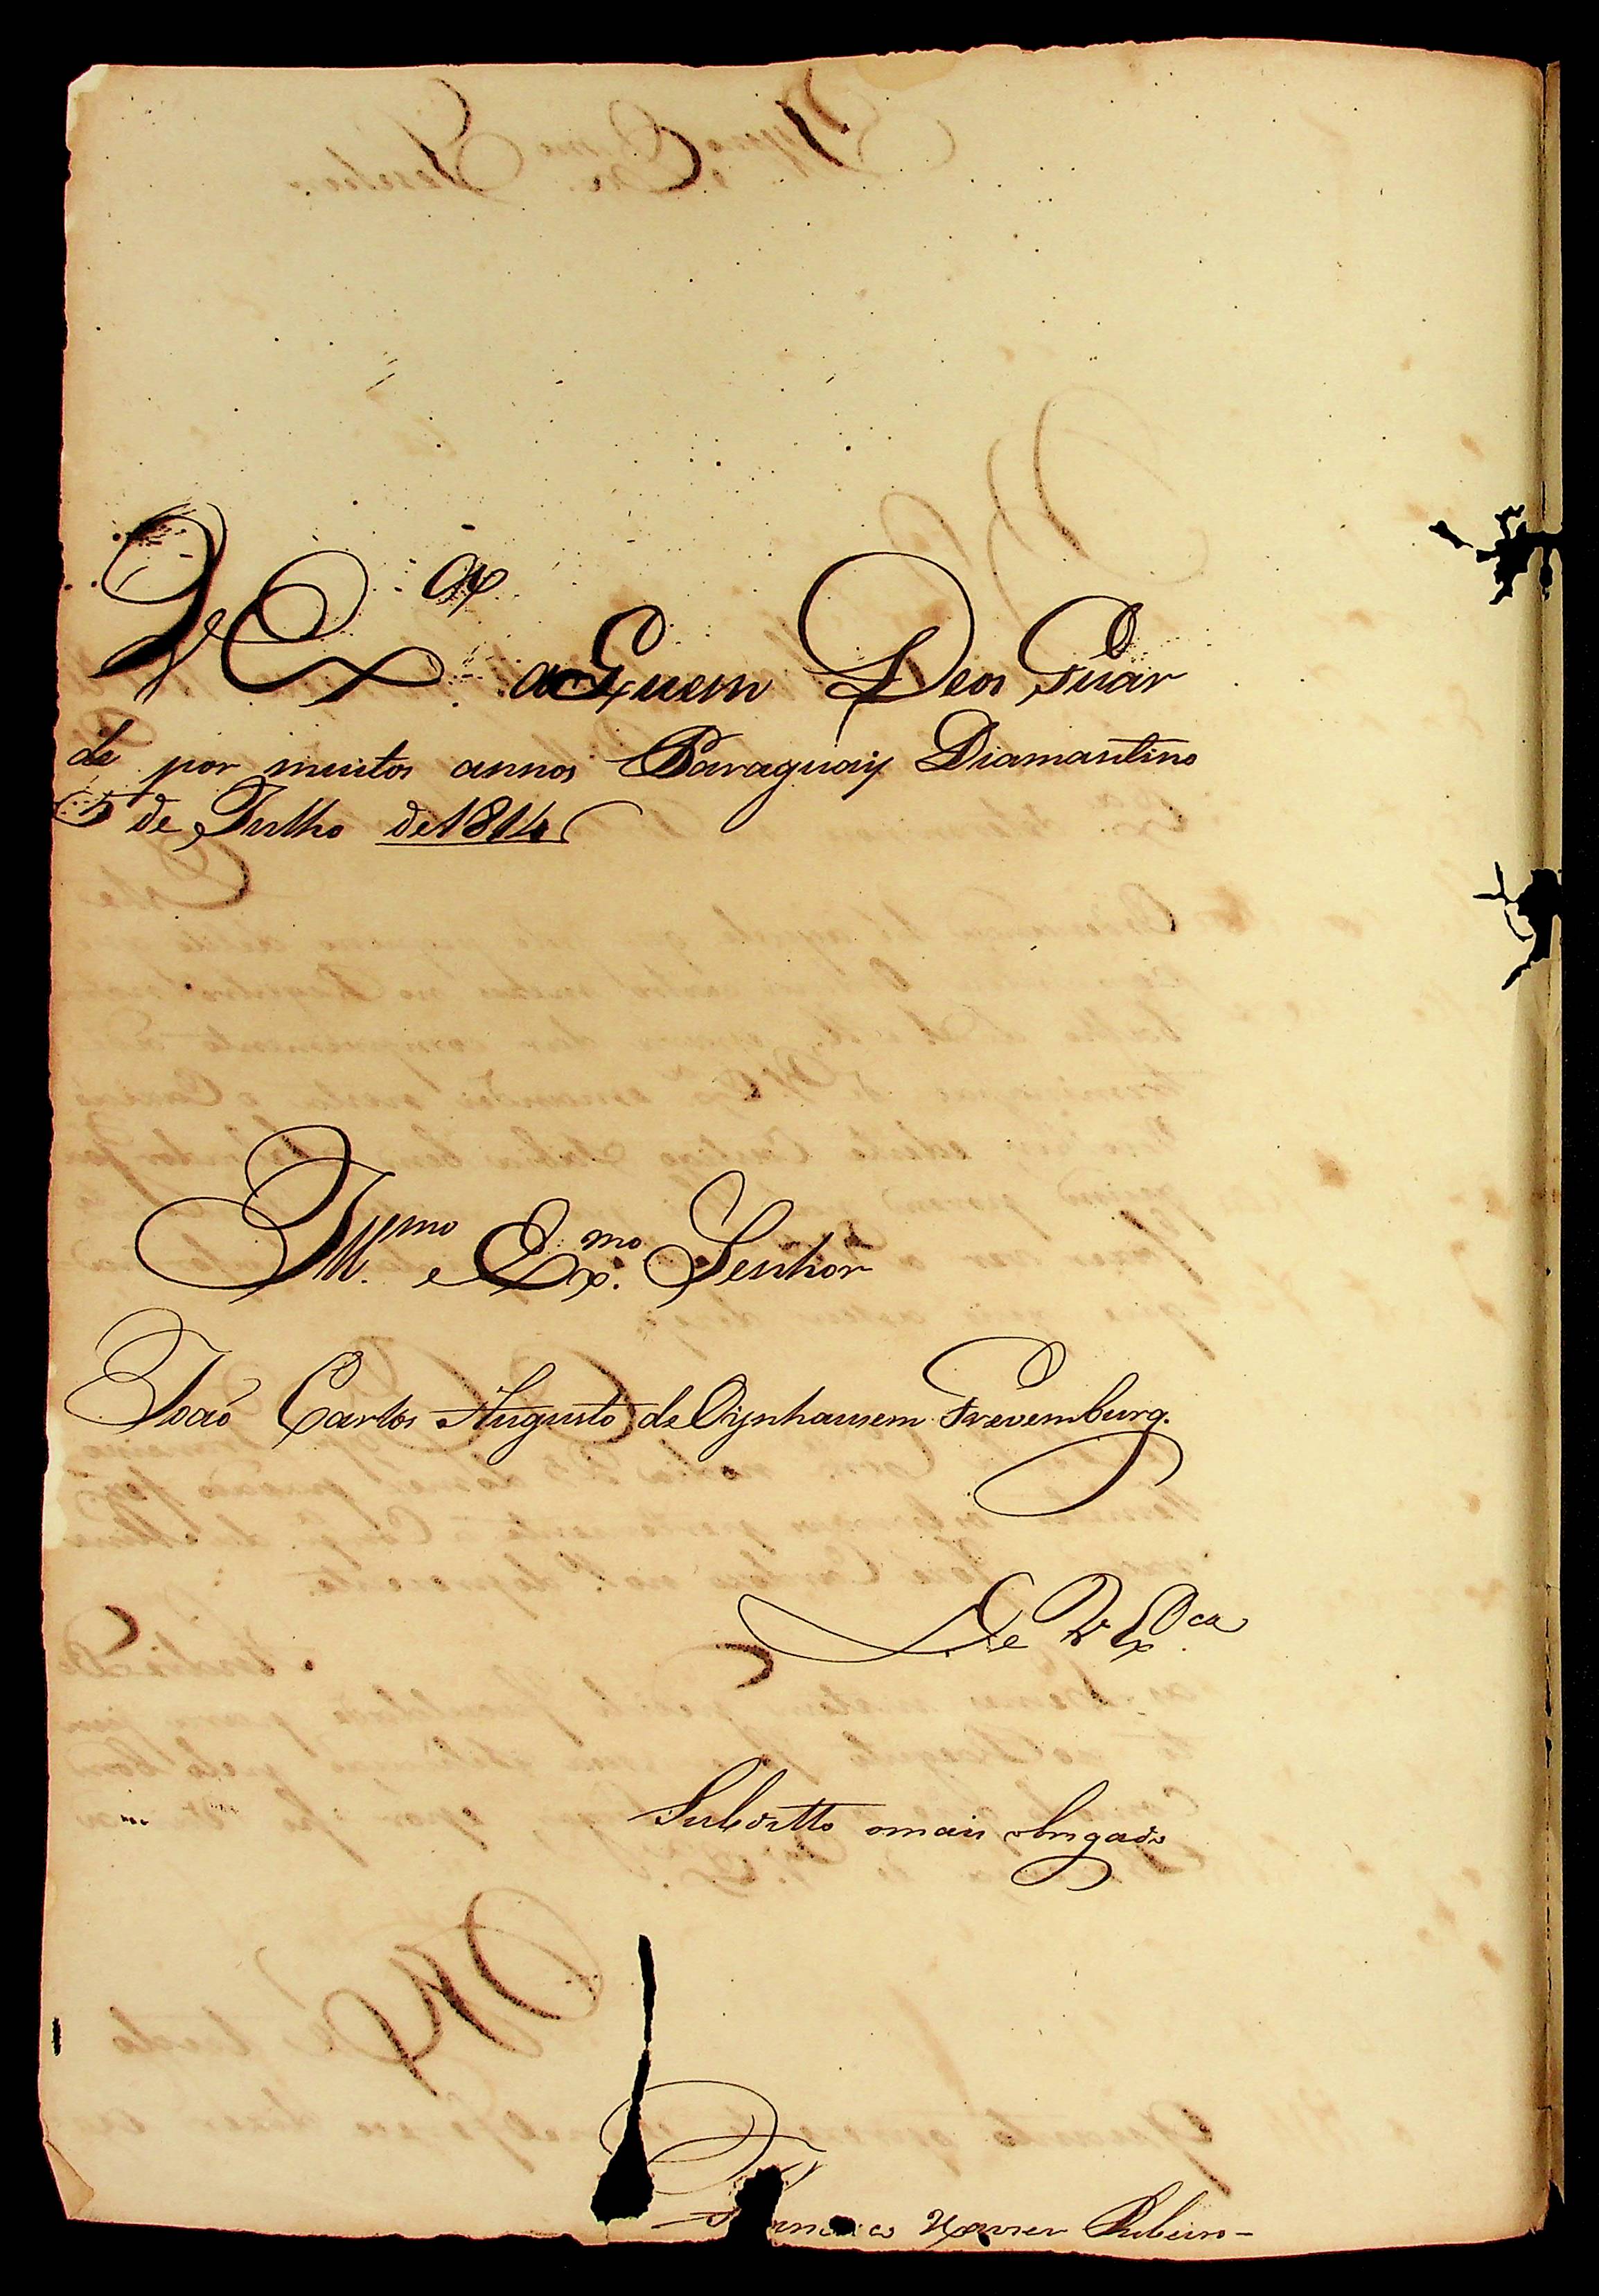 V Exª a Quem Deos Guar
de por muitos annos Paraguay Diamantino
5 de Julho de 1814
Illmo. e Exmo. Senhor
João Carlos Augusto de Oÿnhausem Grevemburg.
De V Exca.
Subditto omais obrigado
Francisco Xavier Ribeiro